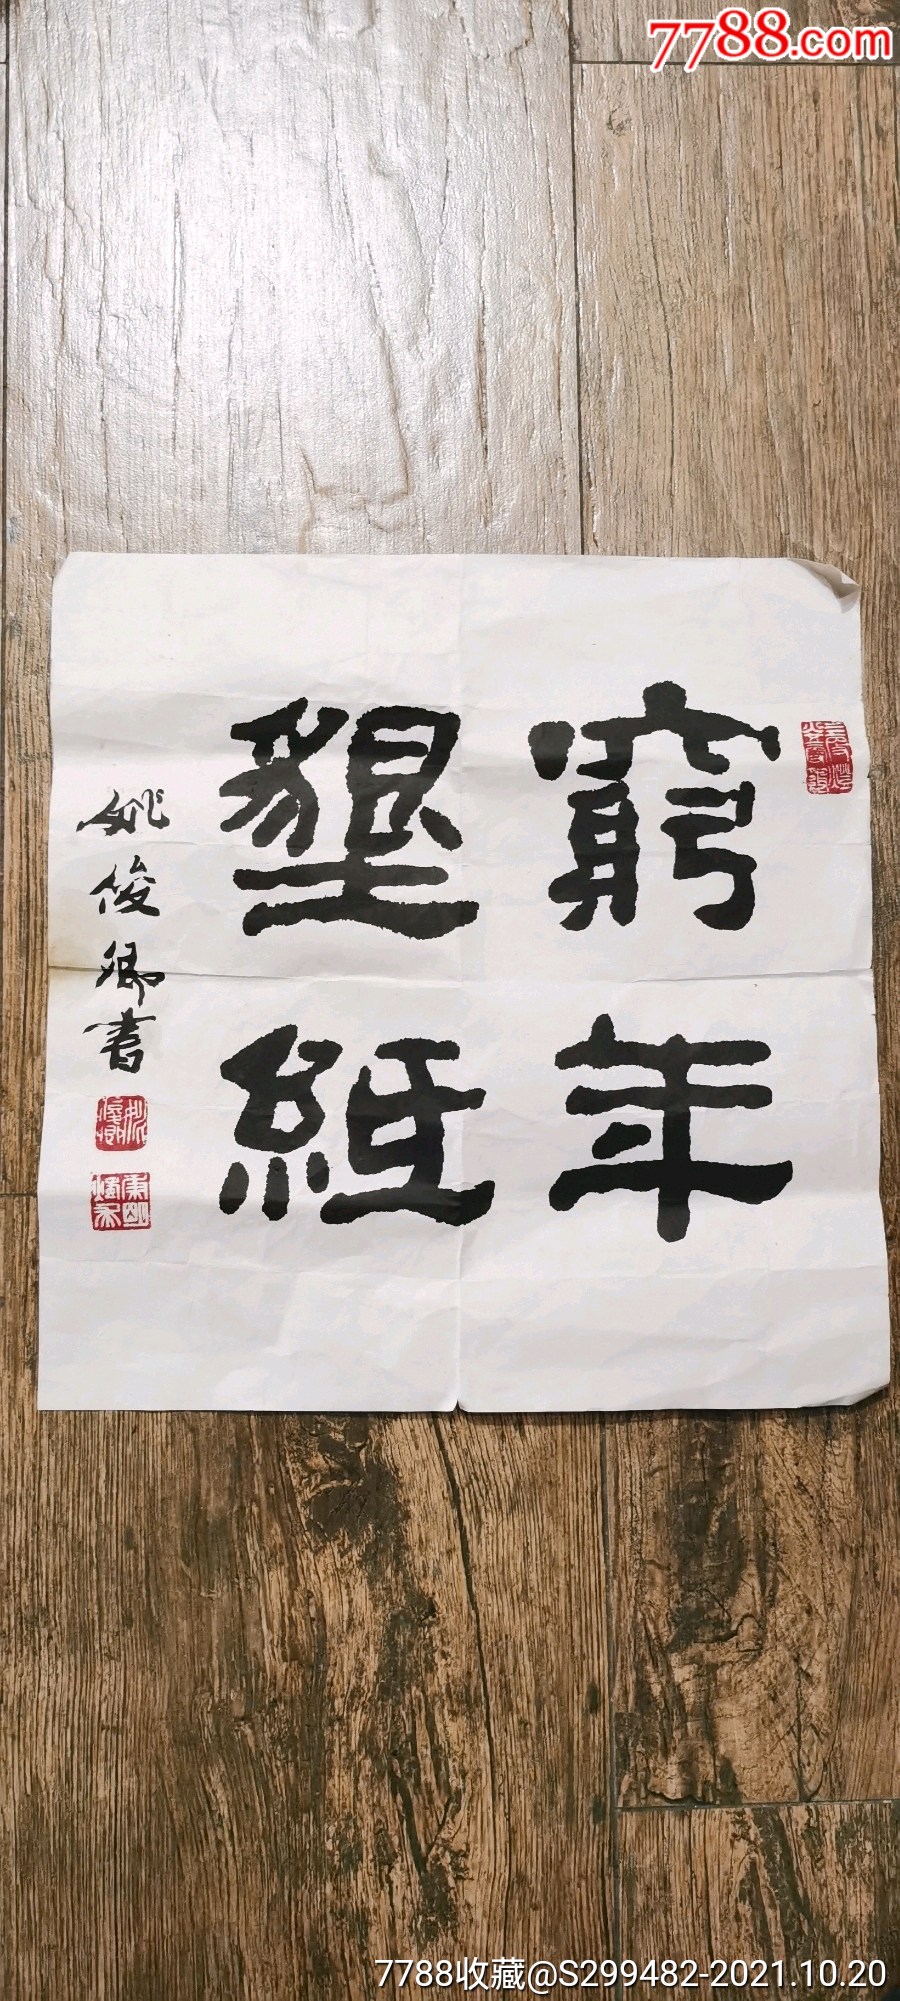 7788.com
窮年
墾紙
姚俊卿書
7788收藏@S299482-2021.10.20